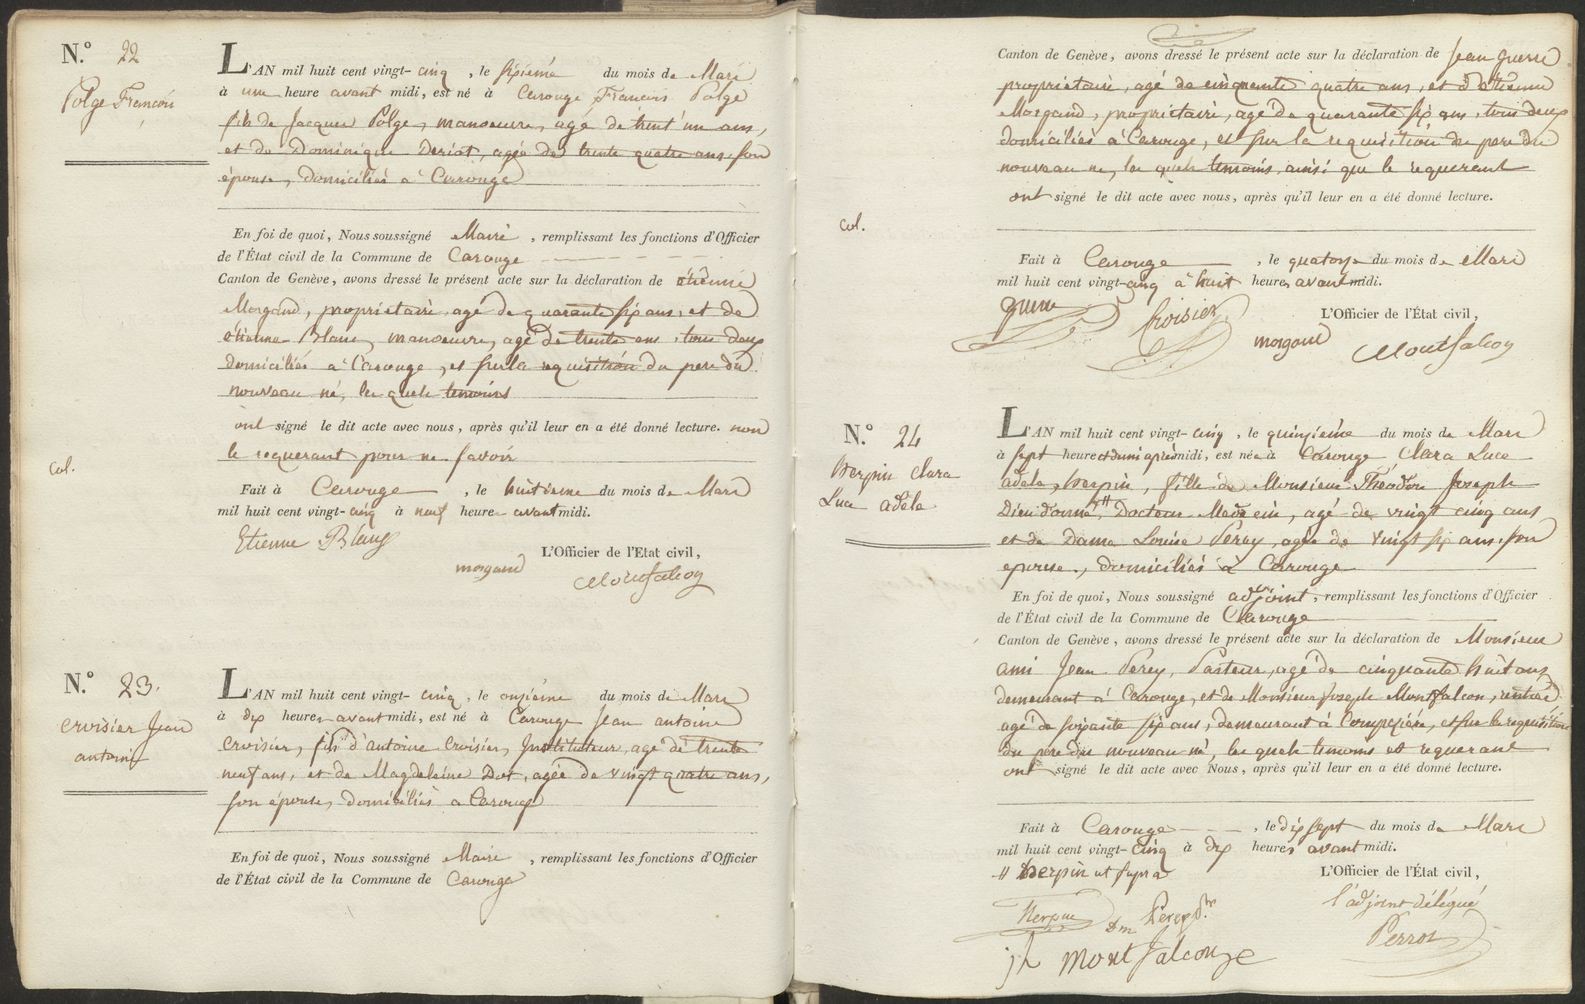 N.° 22
Polge François
L'AN mil huit cent vingt-cinq, le sixième du mois de Mars
à une heure avant midi, est né à Carouge, François Polge
fils de Jacques Polge, manoeuvre, agé de trent'un ans,
et de Dominique Deriat, agée de trente quatre ans, son
épouse, domiciliés à Carouge
En foi de quoi, Nous soussigné Maire, remplissant les fonctions d'Officier
de l'État civil de la Commune de Carouge
Canton de Genève, avons dressé le présent acte sur la déclaration de étienne
Morgand, propriétaire, agé de quarante six ans, et de
étienne Blanc, manoeuvre, agé de trente ans, tous deux
domiciliés à Carouge, et sur la requisition du père du
nouveau né, les quels temoins
ont signé le dit acte avec nous, après qu'il leur en a été donné lecture. non
le requerant pour ne savoir
col.
Fait à Carouge, le huitième du mois de Mars
mil huit cent vingt-cinq à neuf heures avant midi.
Etienne Blanc
L'Officier de l'Etat civil,
morgand
Montfalcon
N.° 23.
croisier Jean
antoine
L'AN mil huit cent vingt-cinq, le onzième du mois de Mars
à dix heures avant midi, est né à Carouge Jean antoine
Croisier, fils d'antoine Croisier, Instituteur, agé de trente
neuf ans, et de Magdeleine Dut, agée de vingt quatre ans,
son épouse, domiciliés à Carouge
En foi de quoi, Nous soussigné Maire, remplissant les fonctions d'Officier
de l'État civil de la Commune de Carouge
Canton de Genève, avons dressé le présent acte sur la déclaration de Jean Guerre
propriétaire, agé de cinquante quatre ans, et d'étienne
Morgand, propriétaire, agé de quarante six ans, tous deux
domiciliés à Carouge, et sur la requisition du père du
nouveau né, les quels temoins, ainsi que le requerant
ont signé le dit acte avec nous, après qu'il leur en a été donné lecture.
col.
Fait à Carouge, le quatorze du mois de Mars
mil huit cent vingt-cinq à huit heures avant midi.
guerre
Croisier
L'Officier de l'État civil,
morgand
Montfalcon
N.° 24
herpin clara
Luce adela
L'AN mil huit cent vingt-cinq, le quinzième du mois de Mars
à sept heures et demi après midi, est née à Carouge Clara Luce
adela, herpin, fille de Monsieur Théodore Joseph
Dieu donné, # Docteur Medecin, agé de vingt cinq ans
et de Dame Louise Perey, agée de vingt six ans, son
epouse, domiciliés à Carouge
En foi de quoi, Nous soussigné adjoint, remplissant les fonctions d'Officier
de l'État civil de la Commune de Carouge
Canton de Genève, avons dressé le présent acte sur la déclaration de Monsieur
ami Jean Perey, Pasteur, agé de cinquante huit ans
demeurant à Carouge, et de Monsieur Joseph Montfalcon, rentier
agé de soixante six ans, demeurant à Compesière, et sur la requisition
du père du nouveau né, les quels temoins et requerant
ont signé le dit acte avec Nous, après qu'il leur en a été donné lecture.
Fait à Carouge, le dix sept du mois de Mars
mil huit cent vingt-cinq à dix heures avant midi.
# herpin ut supra
L'Officier de l'État civil,
l'adjoint délégué
Herpin
Perey
Perrot
Montfalcon